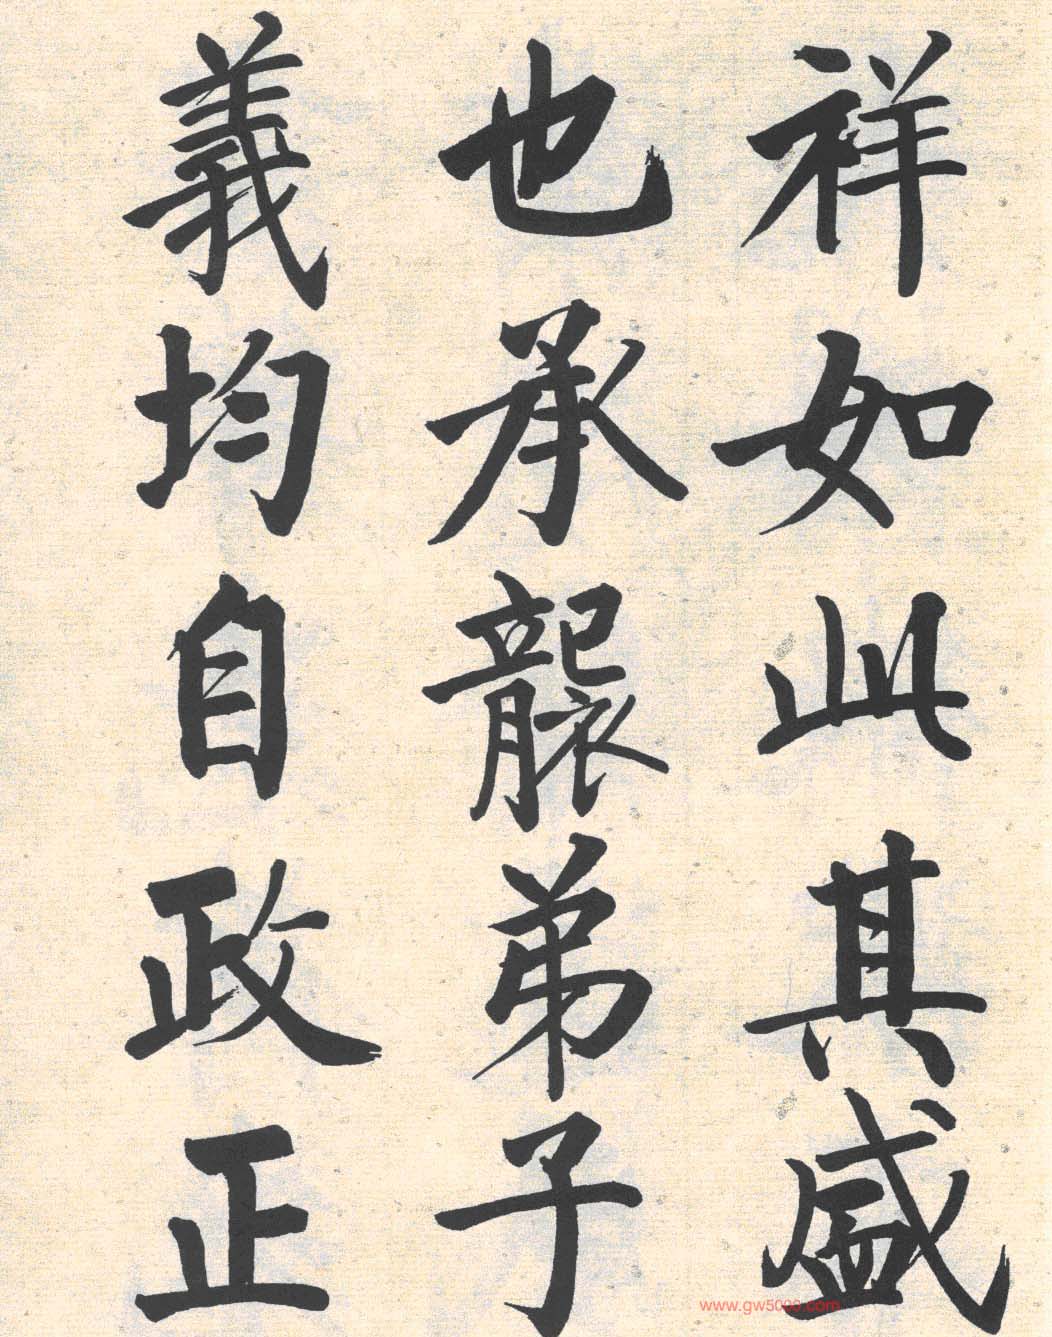 祥如此其盛
也承襲弟子
義均自政正
www.gw5000.com